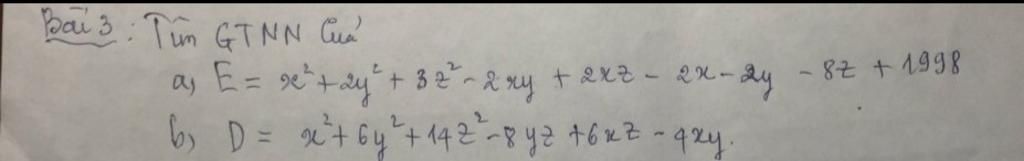 Bài 3 : Tìm GTNN Của
a, E = x² + 2y² + 3z² - 2xy + 2xz - 2x - 2y - 8z + 1998
b, D = x² + 6y² + 14z² - 8yz + 6xz - 4xy.